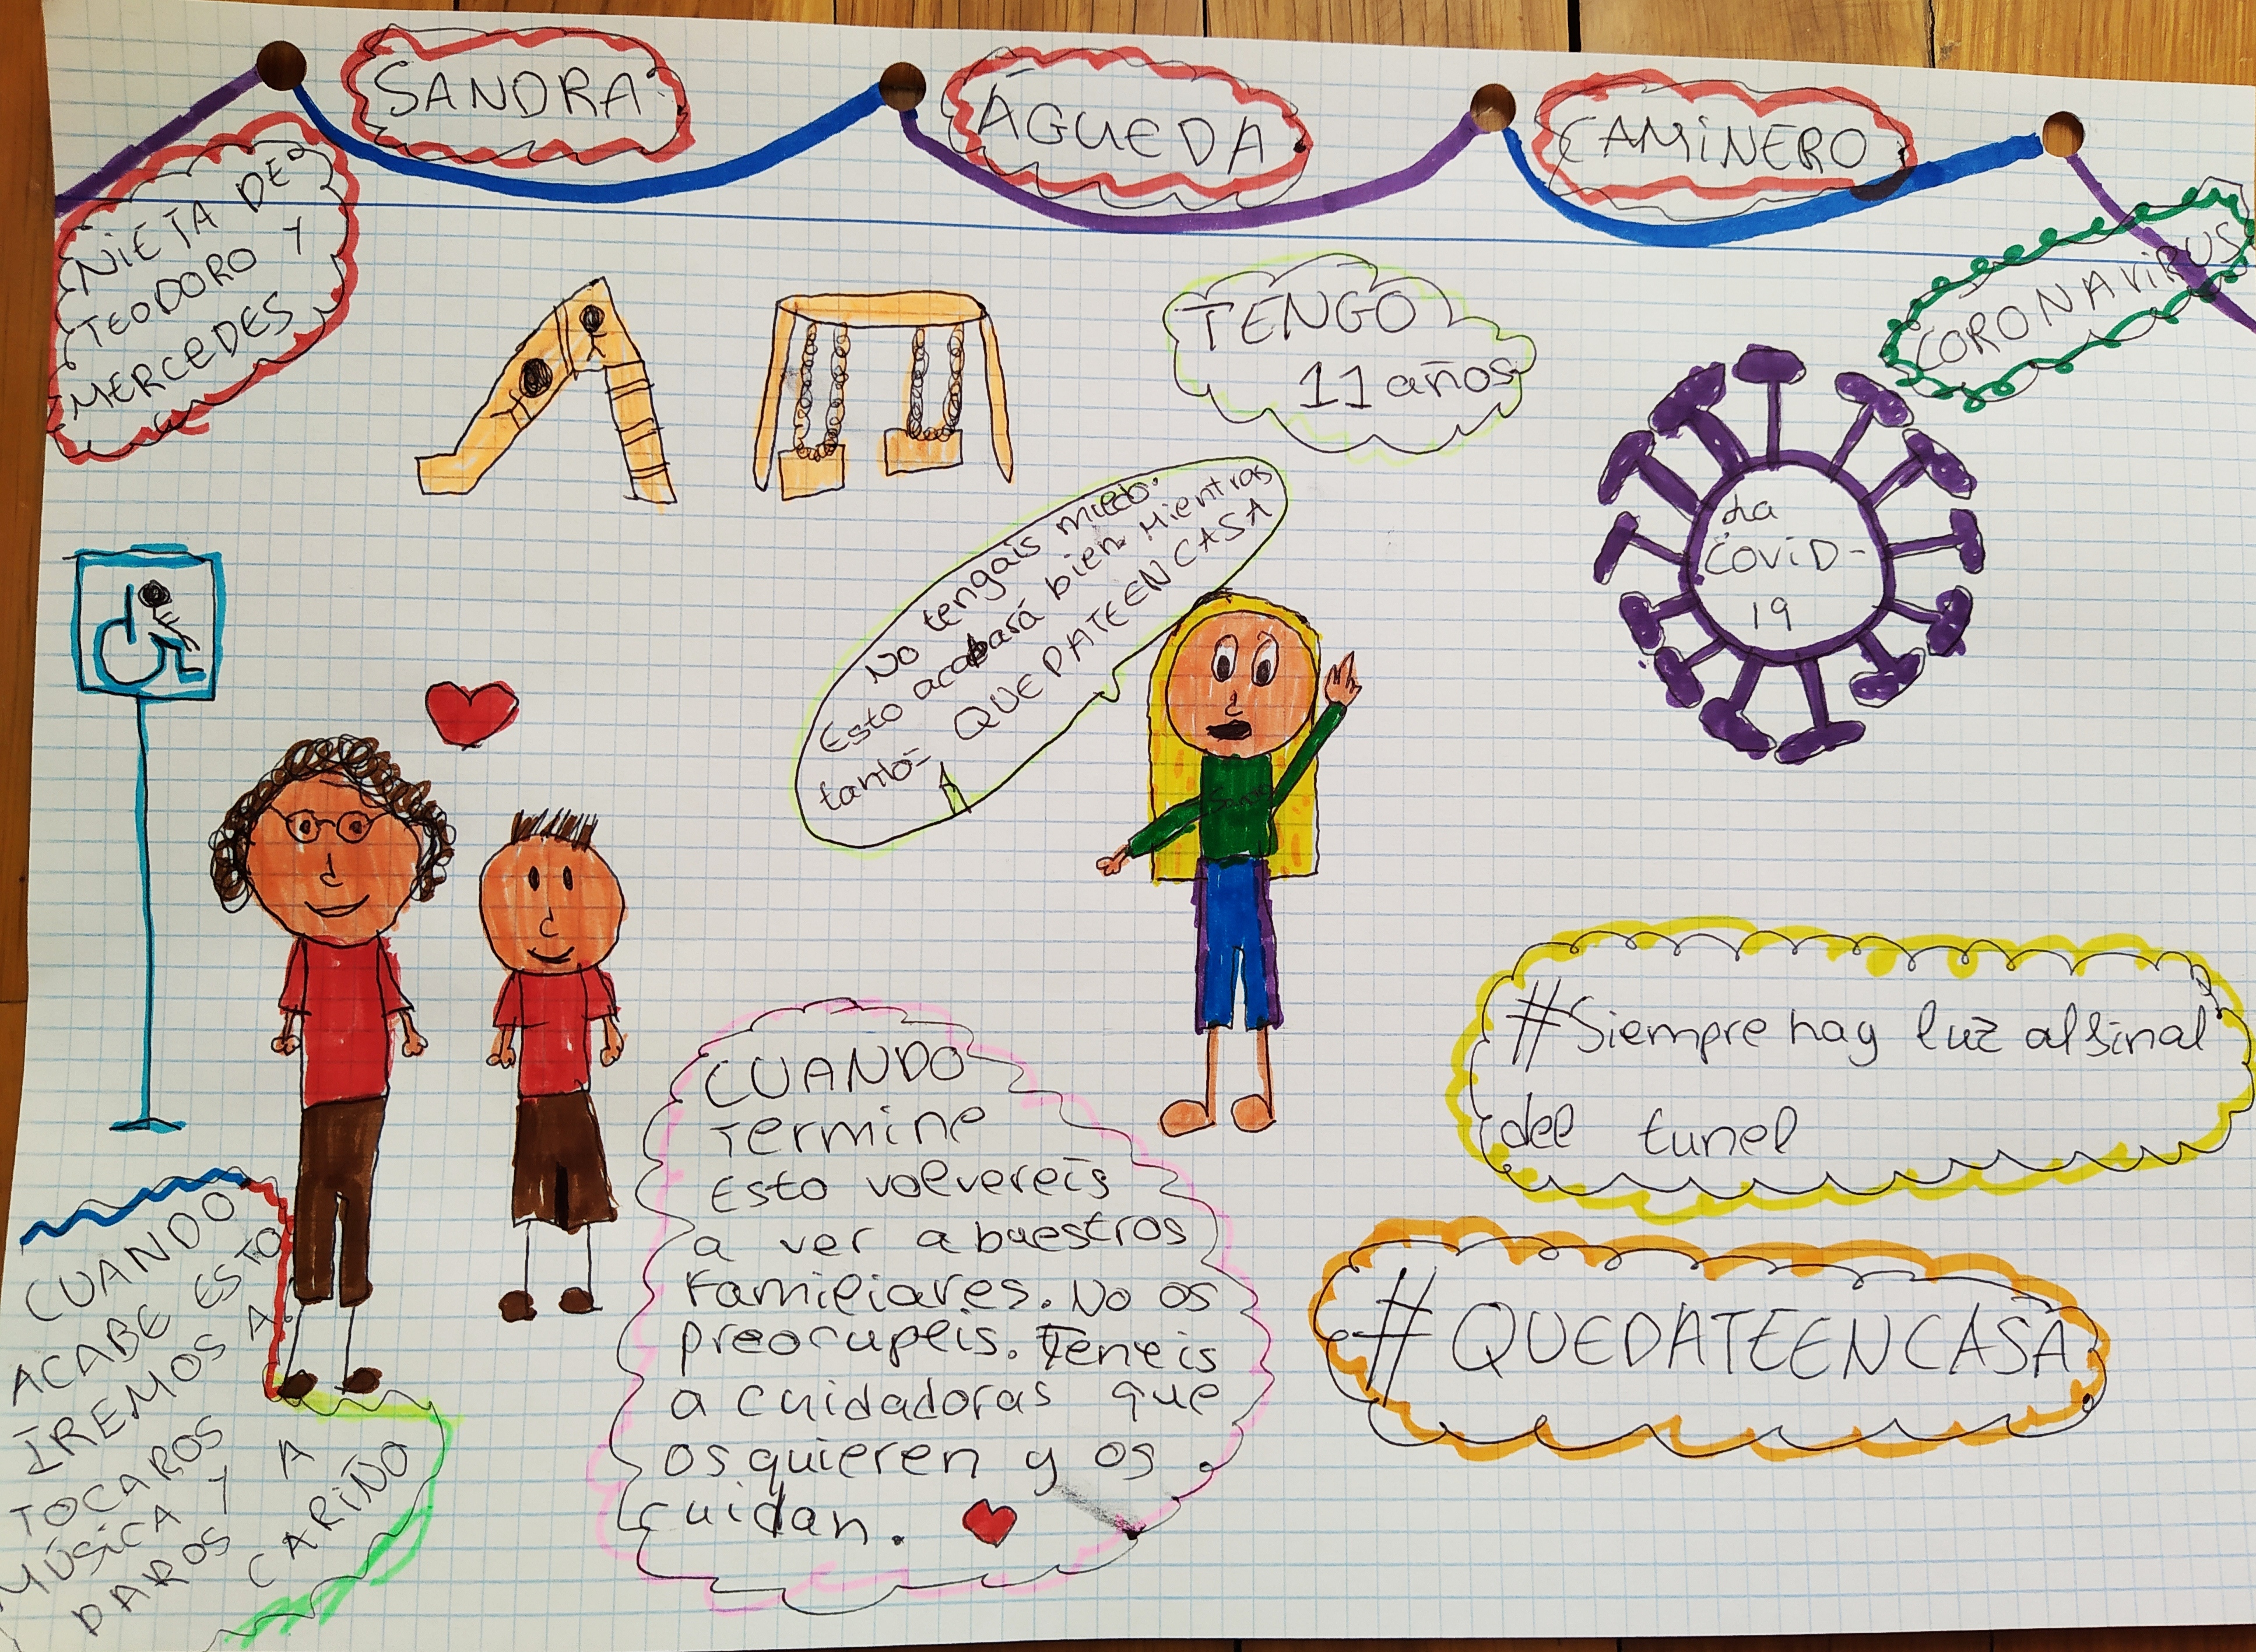 SANDRA
ÁGUEDA
CAMINERO
NIETA DE
TEODORO Y
MERCEDES
CORONAVIRUS
TENGO
11 años
La
COVID-
19
No tengáis miedo.
Esto acabará bien. Mientras
tanto- QUEDATEENCASA
#Siempre hay luz al final
del tunel
#QUEDATEENCASA
CUANDO
Termine
Esto volvereis
a ver a buestros
Familiares. No os
preocupeis. Teneis
a cuidadoras que
os quieren y os
cuidan.
CUANDO
ACABE ESTO
IREMOS A
TOCAROS
MÚSICA Y A
DAROS
CARIÑO